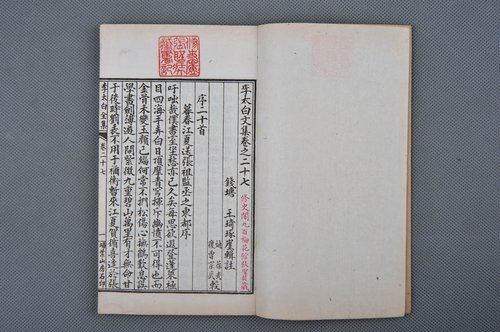 李太白文集卷之二十七
錢塘 王琦琢崖輯註
序二十首
暮春江夏送張祖監丞之東都序
吁咄哉僕書室坐愁亦已久矣每思欲遐登蓬萊極
目四海手弄白日頂摩青穹揮斥幽憤不可得也而
金骨未變玉顏已緇何常不捫松傷心撫鶴歎息誤
學書劍薄遊人間紫微九重碧山萬里有才無命甘
於後時劉表不用于禰衡暫來江夏賀循喜逢於張
李太白全集
卷二十七
一
埽葉山房石印